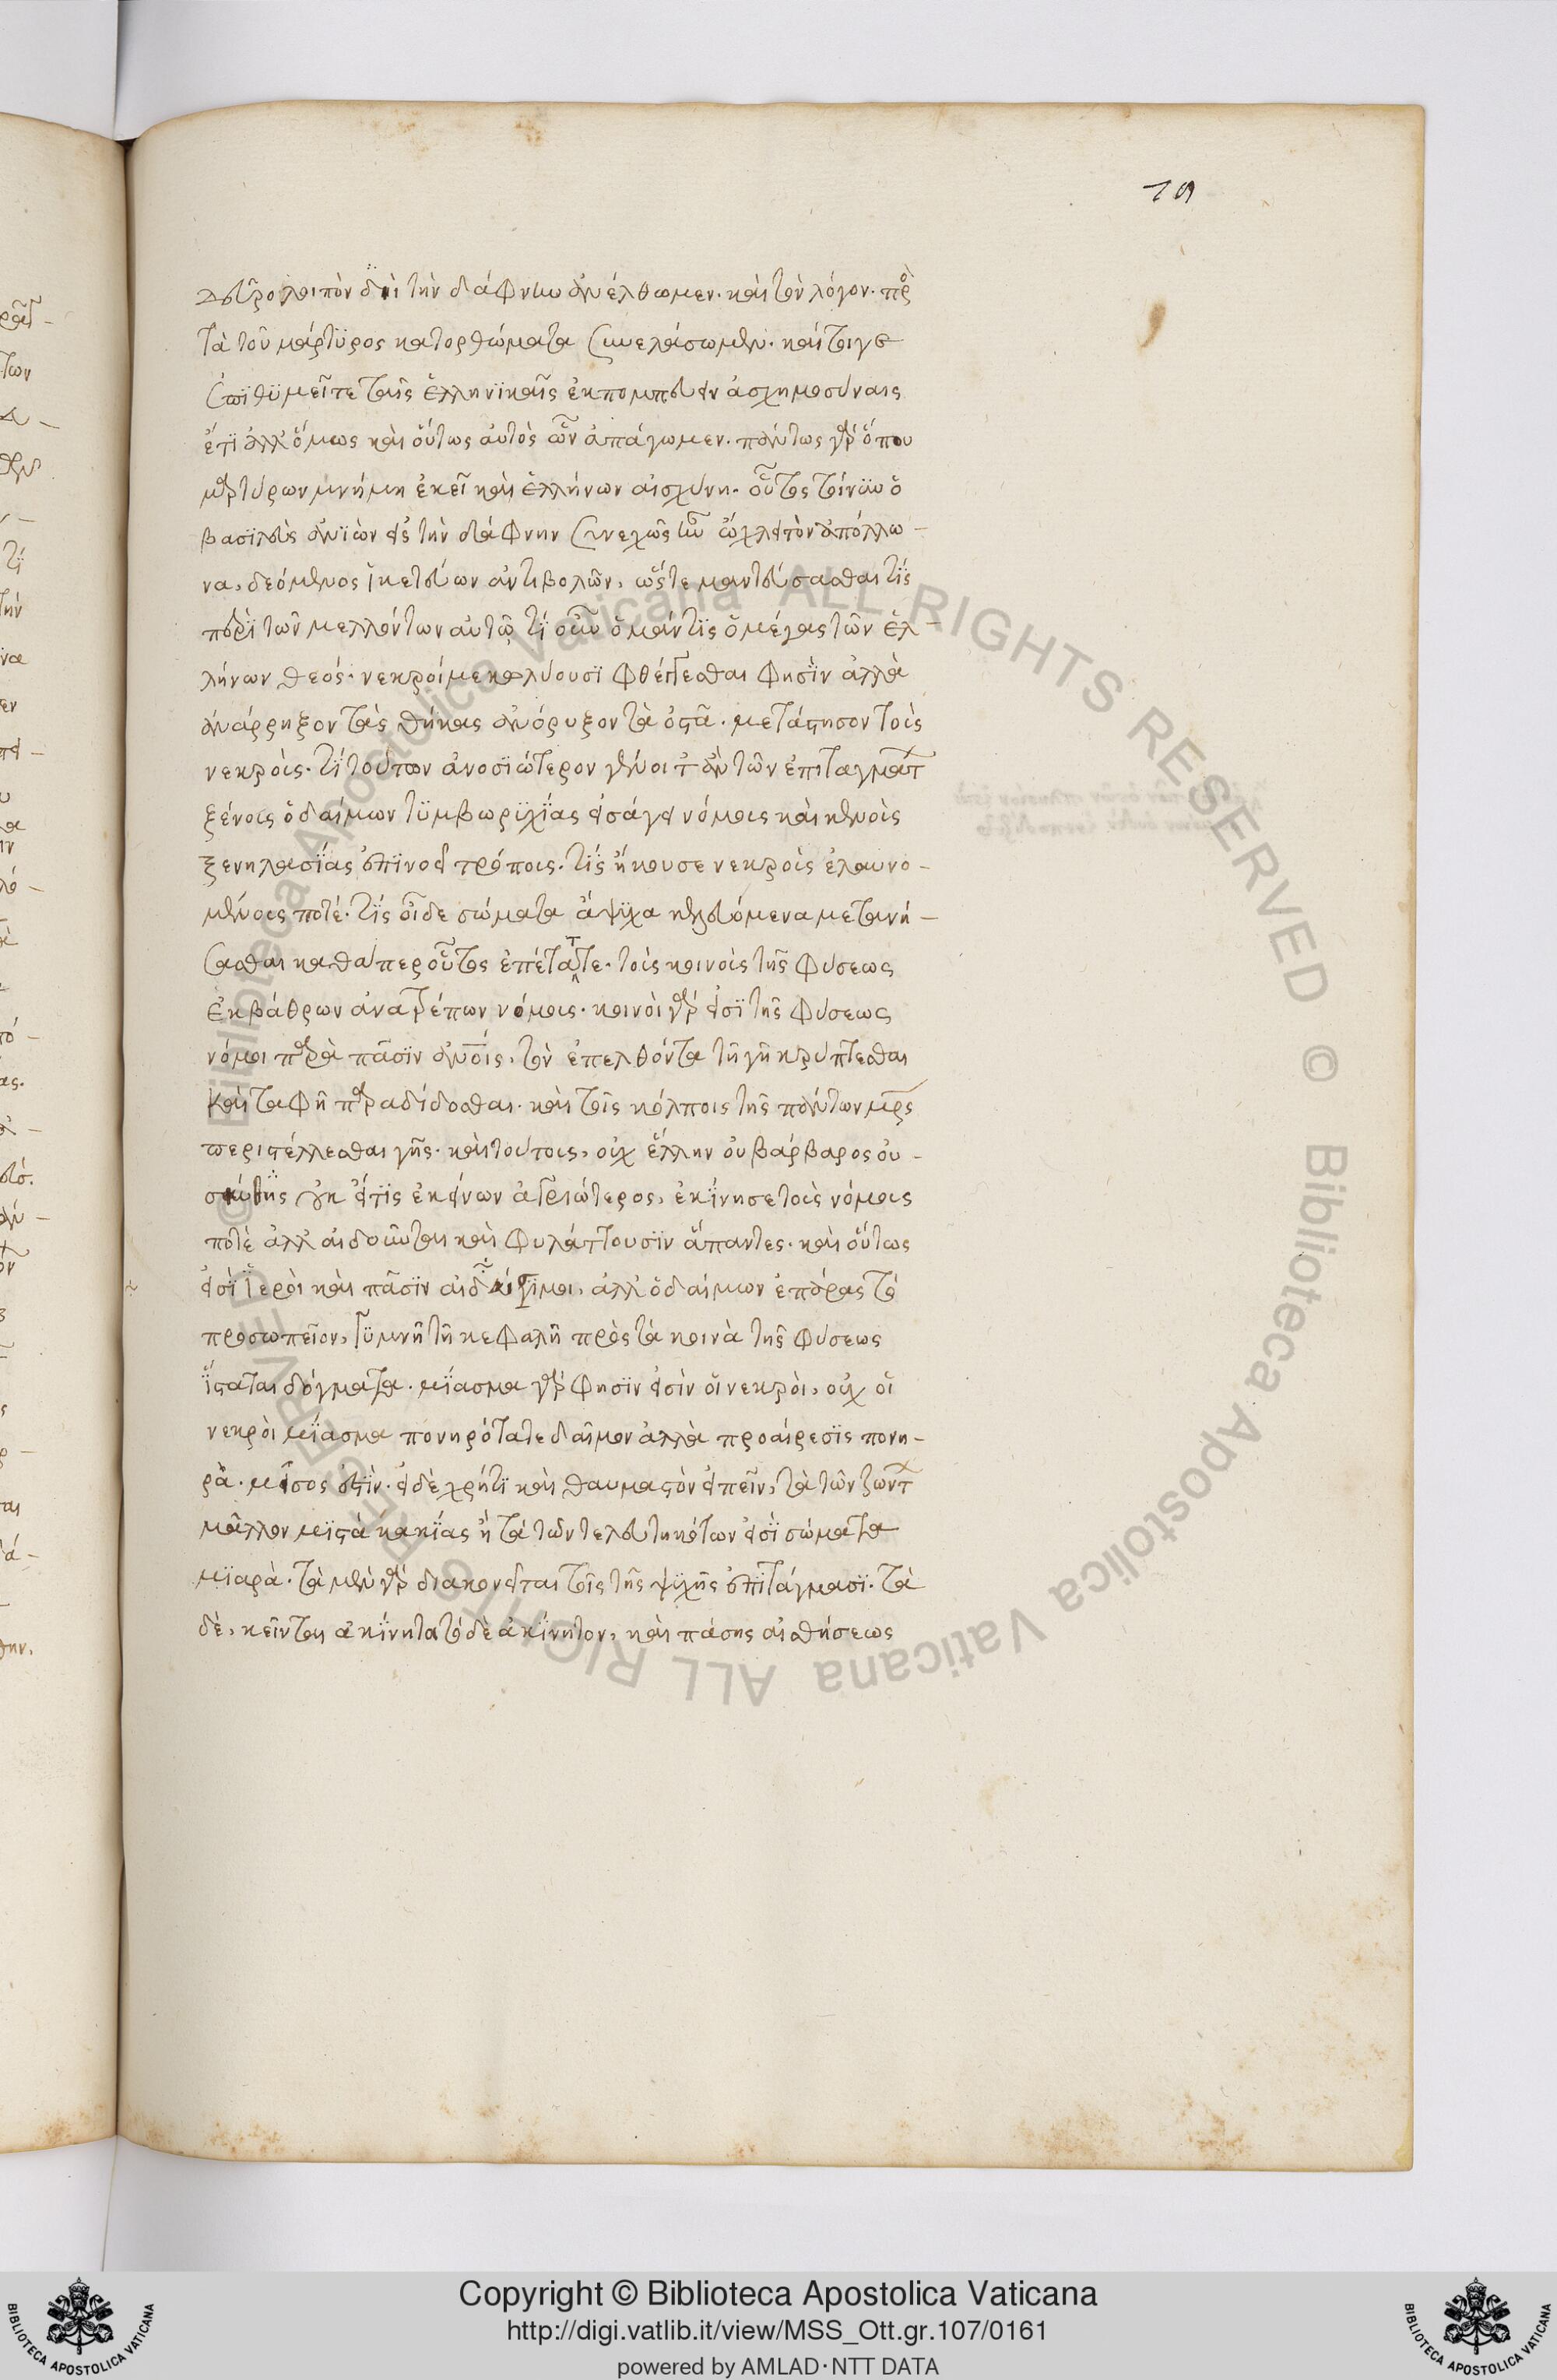 19
δεῦρο λοιπὸν ἐπὶ τὴν δάφνην ἀνέλθωμεν. καὶ τὸν λόγον. πρὸς
τὰ τοῦ μάρτυρος κατορθώματα συνελάσωμεν. καίτοιγε
ἐπϊθϋμεῖτε ταῖς ἑλληνϊκαῖς ἐκπομπεύειν ἀσχημοσύναις
ἔτϊ ἀλλ' ὅμως καὶ οὕτως αὐτὸς ὧν ἀπάγωμεν. πάντως γὰρ ὅπου
μαρτύρων μνήμη ἐκεῖ καὶ ἑλλήνων αἰσχύνη. οὗτος τοίνϋν ὁ
βασϊλεὺς ἀνϊὼν εἰς τὴν δάφνην συνεχῶς ἠνώχλει τὸν ἀπόλλω-
να, δεόμενος ἱκετεύων ἀντιβολῶν, ὥστε μαντεύσασθαι τϊς
περὶ τῶν μελλόντων αὐτῷ τϊ οὖν ὁ μάντϊς ὁ μέγας τῶν ἑλ-
λήνων θεός. νεκροί με κωλύουσϊ φθέγγεσθαι φησὶν ἀλλὰ
ἀνάρρηξον τὰς θήκας ἀνόρυξον τὰ ὀστᾶ. μετάστησον τοὺς
νεκροὺς. τϊ τούτων ἀνοσϊώτερον γένοιτ' ἂν τῶν ἐπιταγμάτων
ξένους ὁ δαίμων τϋμβωρϋχϊας εἰσάγει νόμους καὶ καινοὺς
ξενηλασϊας ἐπϊνοεῖ τρόπους. τϊς ἤκουσε νεκροὺς ἐλαυνο-
μένους ποτέ. τϊς οἶδε σώματα ἄψϋχα κελευόμενα μετανί-
σασθαι καθάπερ οὗτος ἐπέταττε. τοὺς κοινοὺς τῆς φύσεως
ἐκ βάθρων ἀνατρέπων νόμους. κοινοὶ γὰρ εἰσϊ τῆς φύσεως
νόμοι παρὰ πᾶσϊν ἀνθρώποις, τὸν ἐπελθόντα τῇ γῇ κρύπτεσθαι
καὶ ταφῇ παραδίδοσθαι. καὶ τοῖς κόλποις τῆς πάντων μητρὸς
περιστέλλεσθαι γῆς. καὶ τούτους, οὐχ ἕλλην οὐ βάρβαρος οὐ
σκύθης οὐκ εἴ τϊς ἐκείνων ἀγριώτερος, ἐκϊνησε τοὺς νόμους
ποτὲ ἀλλ' αἰδοῦνται καὶ φυλάττουσϊν ἅπαντες. καὶ οὕτως
εἰσϊ ἱεροὶ καὶ πᾶσϊν αἰδέσϊμοι, ἀλλ' ὁ δαίμων ἐπάρας τὸ
προσωπεῖον, γϋμνῇ τῇ κεφαλῇ πρὸς τὰ κοινὰ τῆς φύσεως
ἵσταται δόγματα. μϊασμα γὰρ φησϊν εἰσὶν οἱ νεκροὶ, οὐχ οἱ
νεκροὶ μϊασμα πονηρότατε δαῖμον ἀλλὰ προαίρεσϊς πονη-
ρὰ. μῖσος ἐστὶν. εἰ δὲ χρή τϊ καὶ θαυμαστὸν εἰπεῖν, τὰ τῶν ζώντων
μᾶλλον μϊστὰ κακϊας ἢ τὰ τῶν τελευτηκότων εἰσϊ σώματα
μϊαρὰ. τὰ μὲν γὰρ διακονεῖται τοῖς τῆς ψϋχῆς ἐπϊτάγμασϊ. τὰ
δὲ, κεῖνται ἀκϊνητα τὸ δὲ ἀκίνητον, καὶ πάσης αἰσθήσεως
Copyright © Biblioteca Apostolica Vaticana
http://digi.vatlib.it/view/MSS_Ott.gr.107/0161
powered by AMLAD·NTT DATA